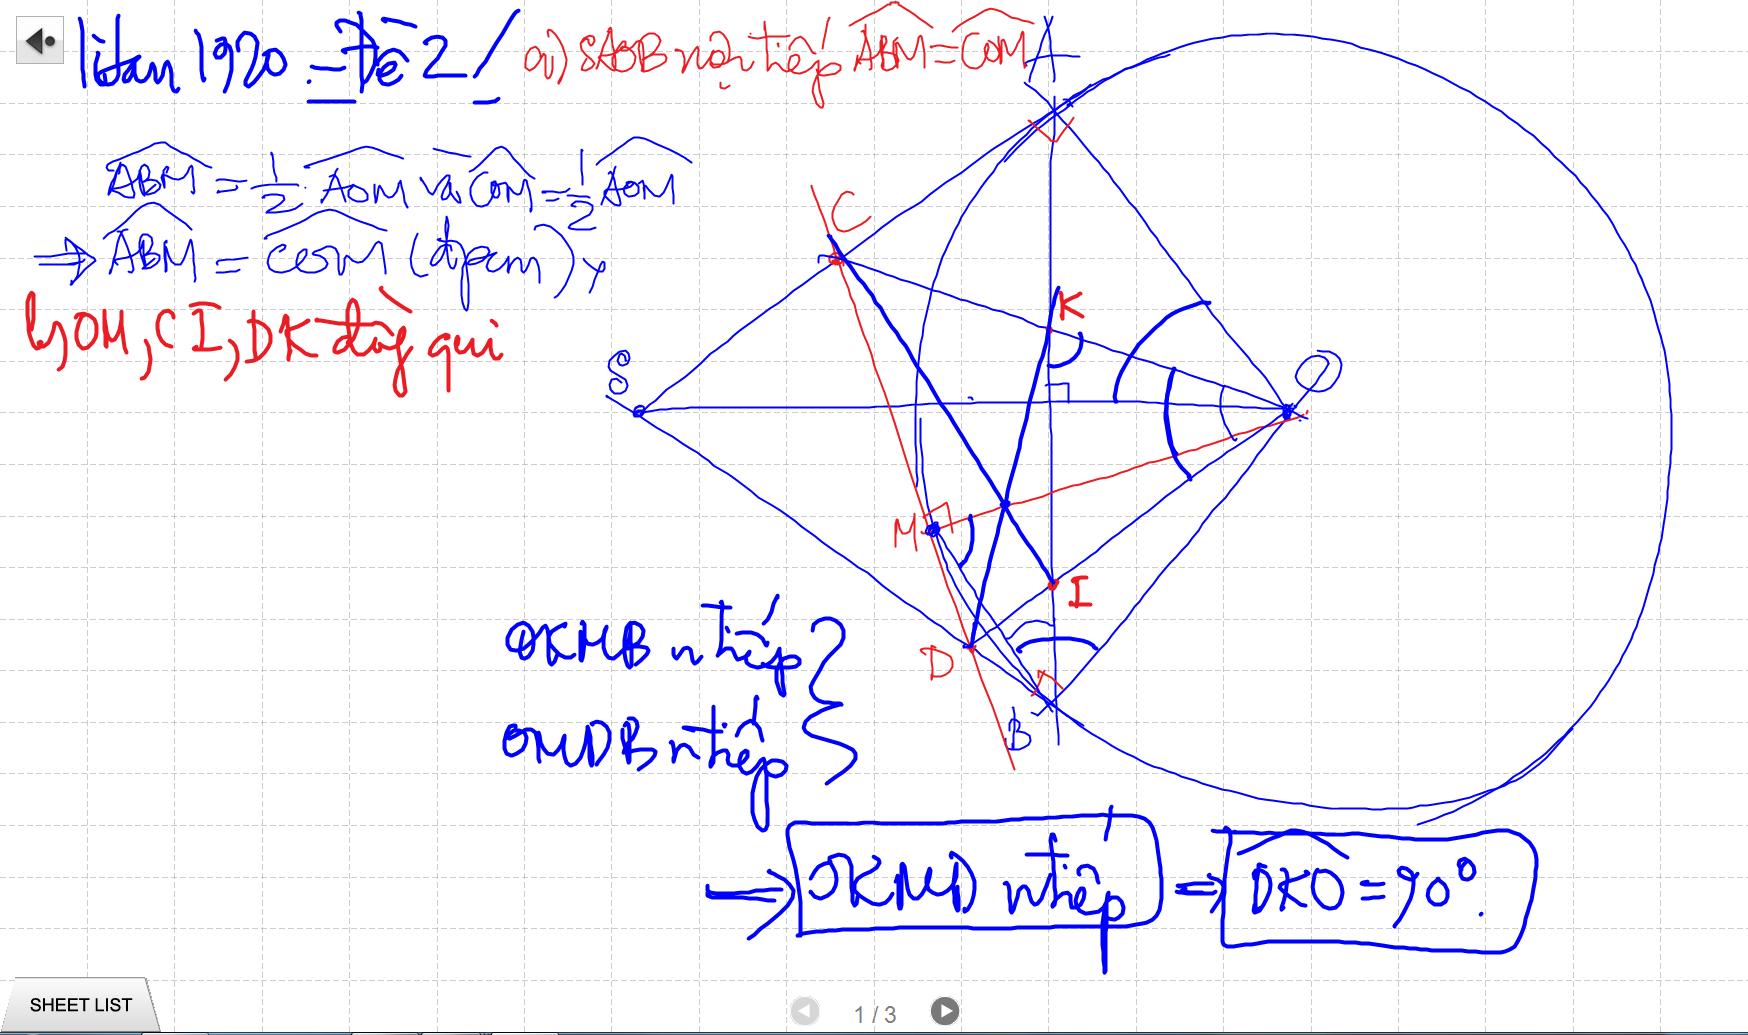 litan 1920 - Đề 2 /
a) SAOB nội tiếp ABM = COM
ABM = 1/2 . AOM và COM = 1/2 AOM
⇒ ABM = COM (đpcm)
b) OM, CI, DK đồng qui
A
C
K
S
O
M
I
D
B
OKMB ntiếp
OMDB ntiếp
⇒ OKMD ntiếp ⇒ DKO = 90°.
SHEET LIST
1 / 3